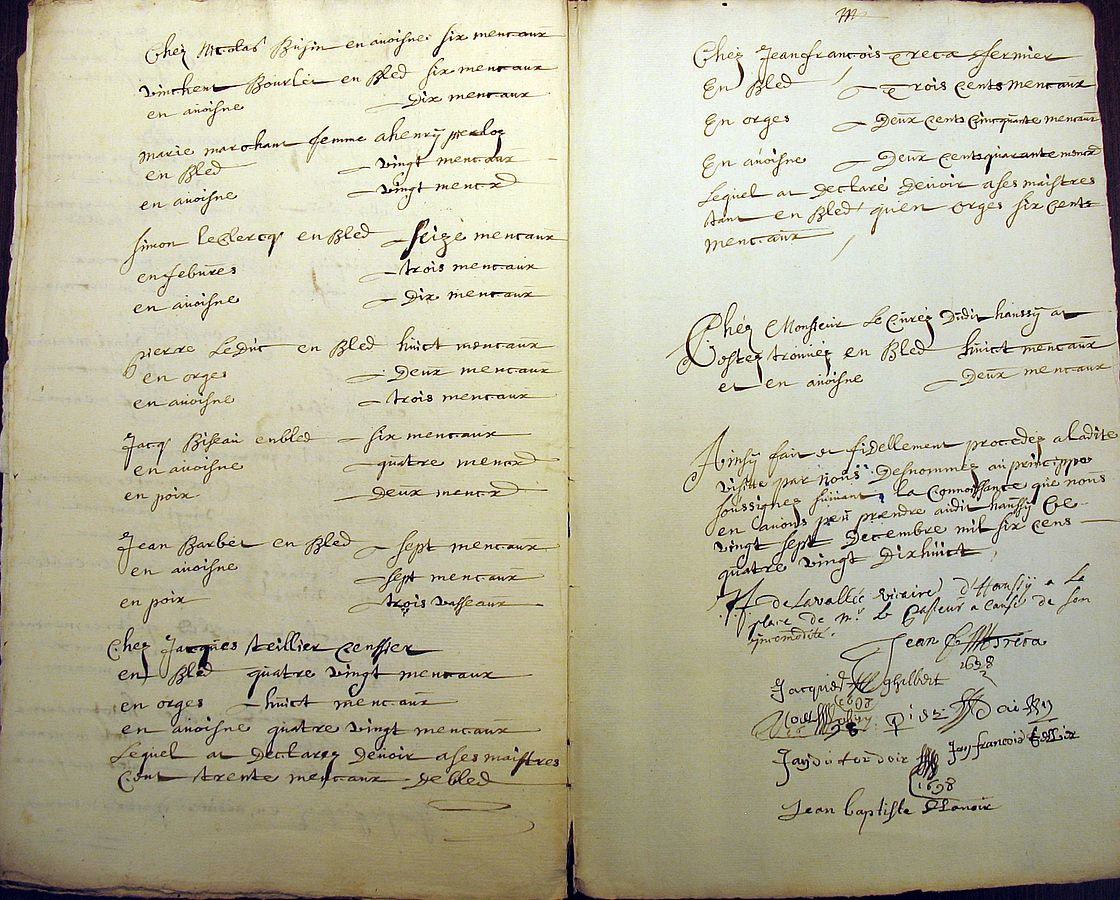 Chez Nicolas Busin en avoisne six mencaux
vinchent Bourlet en Bled six mencaux
en avoisne dix mencaux
marie marchant femme a henry
en Bled vingt mencaux
en avoisne vingt mencd
simon leClercq en Bled seize mencaux
en febures trois mencaux
en avoisne dix mencaux
pierre Leduc en Bled huict mencaux
en orges Deux mencaux
en avoisne trois mencaux
Jacq Biseau en bled six mencaux
en avoisne quatre mencd
en poix deux mencd
Jean Barbet en Bled sept mencaux
en avoisne sept mencaux
en poix trois vasseaux
Chez Jacques teillier Censsier
en Bled quatre vingt mencaux
en orges huict mencaux
en avoisne quatre vingt mencaux
Lequel at declarez devoir a ses maistres
Cent trente mencaux de bled
Chez Jean francois Treca fermier
En Bled Trois Cents mencaux
En orges Deux Cents Cincquante mencaux
En avoisne Deux Cents quarante mencd
Lequel at Declaré Devoir a ses maistres
tant en Bled qu'en orges six Cents
mencaux
Chéz Monsieur Le Curéz Dudit haussy at
Estez trouvéz en Bled huict mencaux
et en avoisne Deux mencaux
Ainsy fait et fidellement procedéz a ladite
visitte par nous Desnommes au princippe
soussignez suivant la Connoissance que nous
en avons peu prendre audit haussy Ce
vingt sept Decembre mil six Cens
quatre vingt Dixhuict
de Lavallée vicaire d'Haussy a la
place de Mr. le Pasteur a cause de son
incomodité.
Jean Treca
1698
Jacque ghilbert
1698
98
Jan francois Tellier
1698
Jean baptiste Lanoir